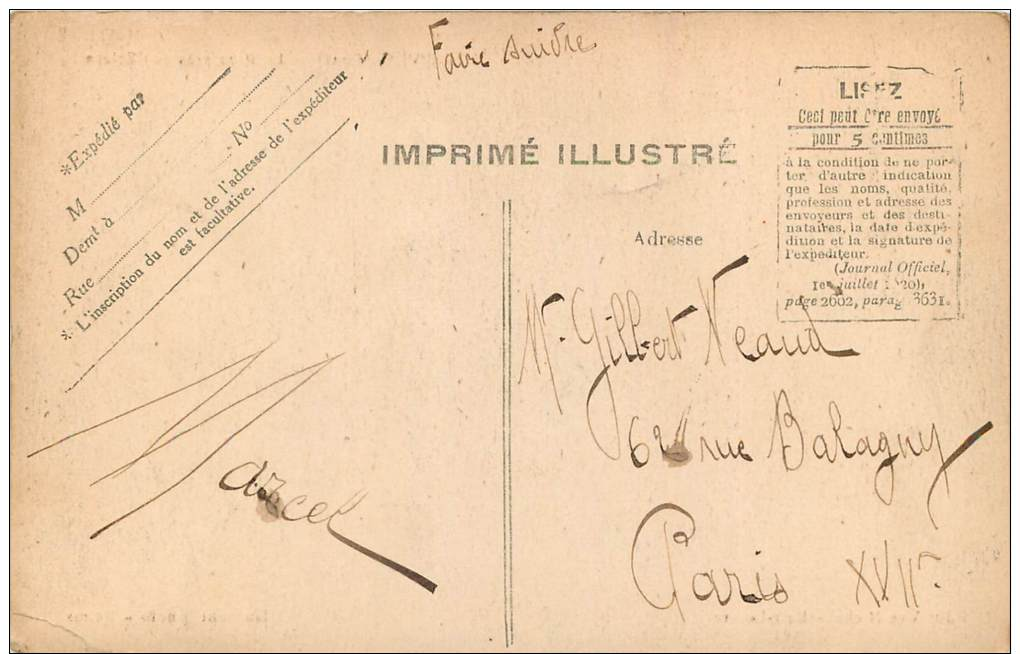 Faire suivre
*Expédié par
M
Demt à
Rue No
* L'inscription du nom et de l'adresse de l'expéditeur
est facultative.
IMPRIMÉ ILLUSTRÉ
LISEZ
Ceci peut être envoyé
pour 5 centimes
à la condition de ne por-
ter d'autre indication
que les noms, qualité,
profession et adresse des
envoyeurs et des desti-
nataires, la date d'expé-
dition et la signature de
l'expéditeur.
(Journal Officiel,
1er juillet 1920),
page 2602, parag 3631.
Adresse
Mr. Gilbert Neaud
62 rue Balagny
Paris XVIIe
Marcel